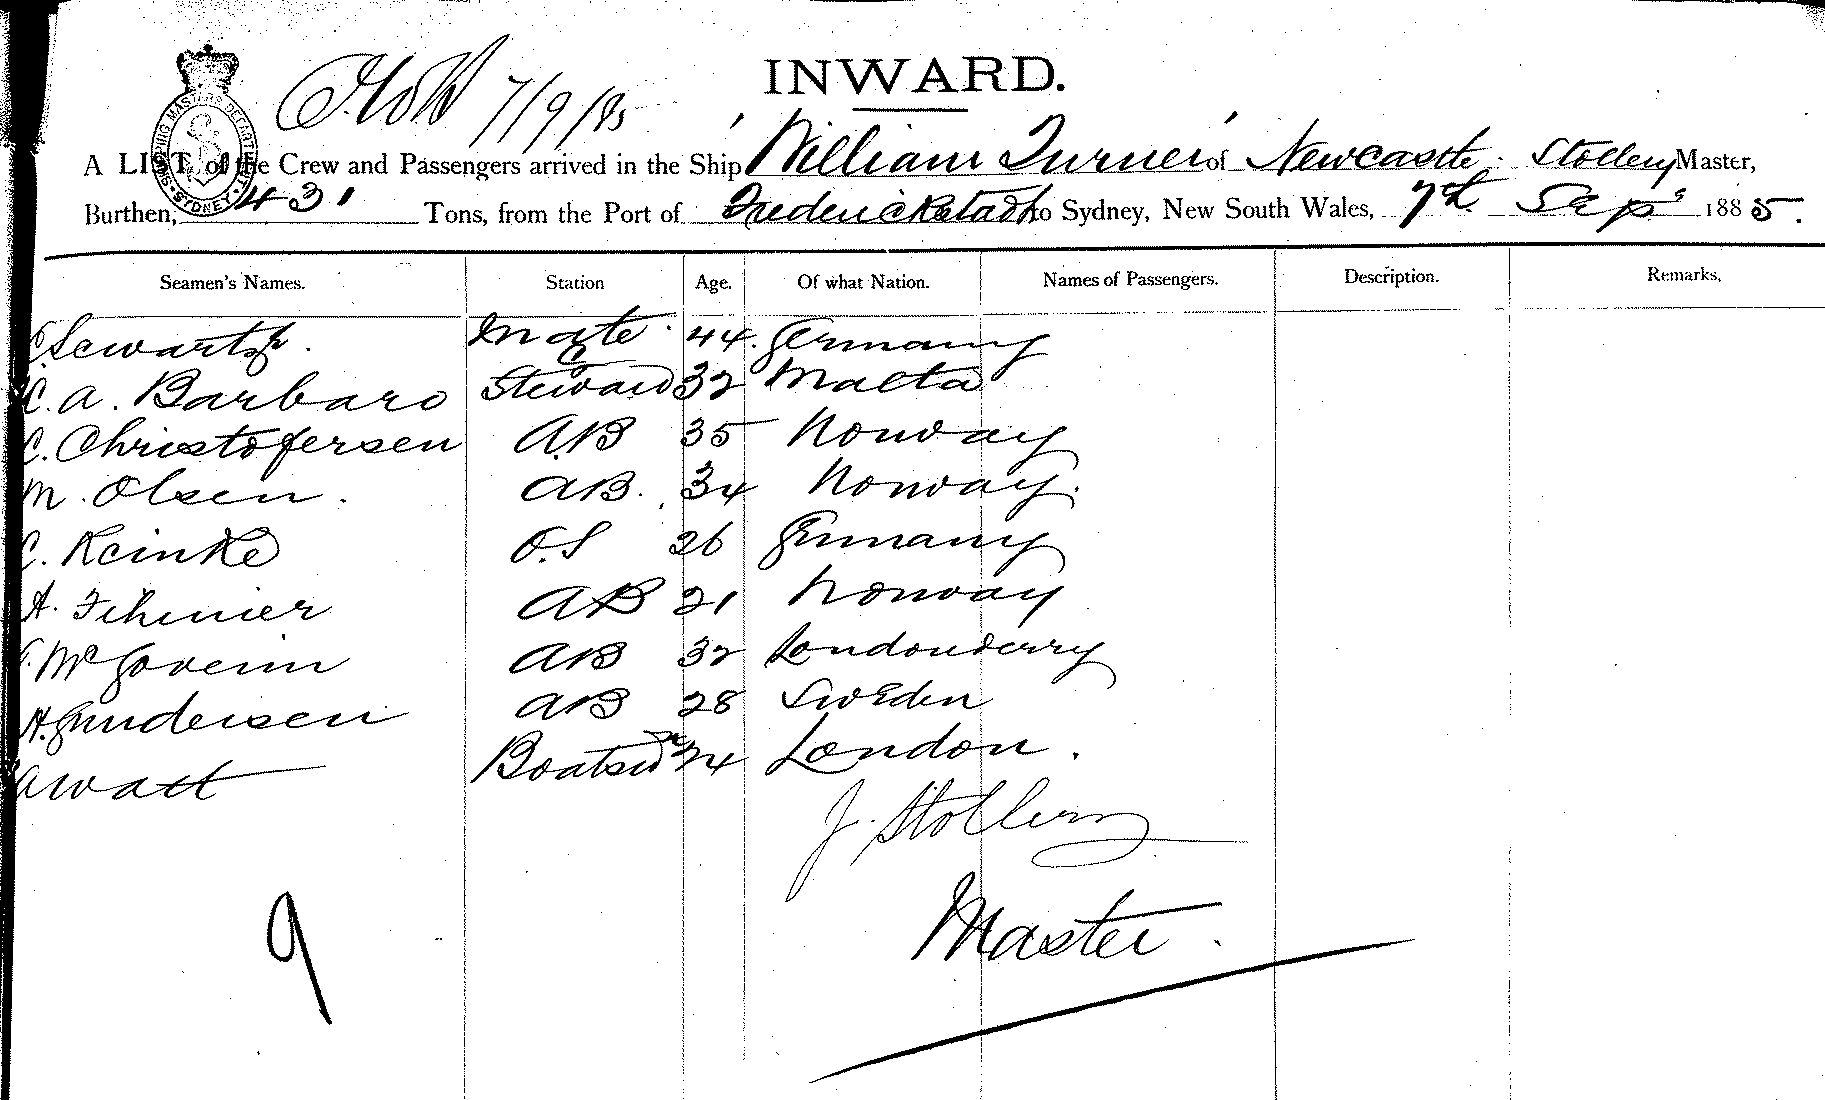 INWARD.
7/9/85
SHIPPING MASTERS DEPARTMENT SYDNEY
A LIST of the Crew and Passengers arrived in the Ship William Turner of Newcastle. Stollery Master,
Burthen, 431 Tons, from the Port of Frederickstadh to Sydney, New South Wales, 7th Sep 1885.
Seamen's Names. Station Age. Of what Nation. Names of Passengers. Description. Remarks.
Mate 44. Germany
C. A. Barbaro Steward 32 Malta
C. Christofersen A.B 35 Norway
M. Olsen. AB. 34 Norway.
C. Reinke O.S 26 Germany
A. AB 21 Norway
McGovern AB 32 Londonderry
H. Gundersen AB 28 Sweden
A Watt Boatswn 24 London.
J. Stollery
Master.
9